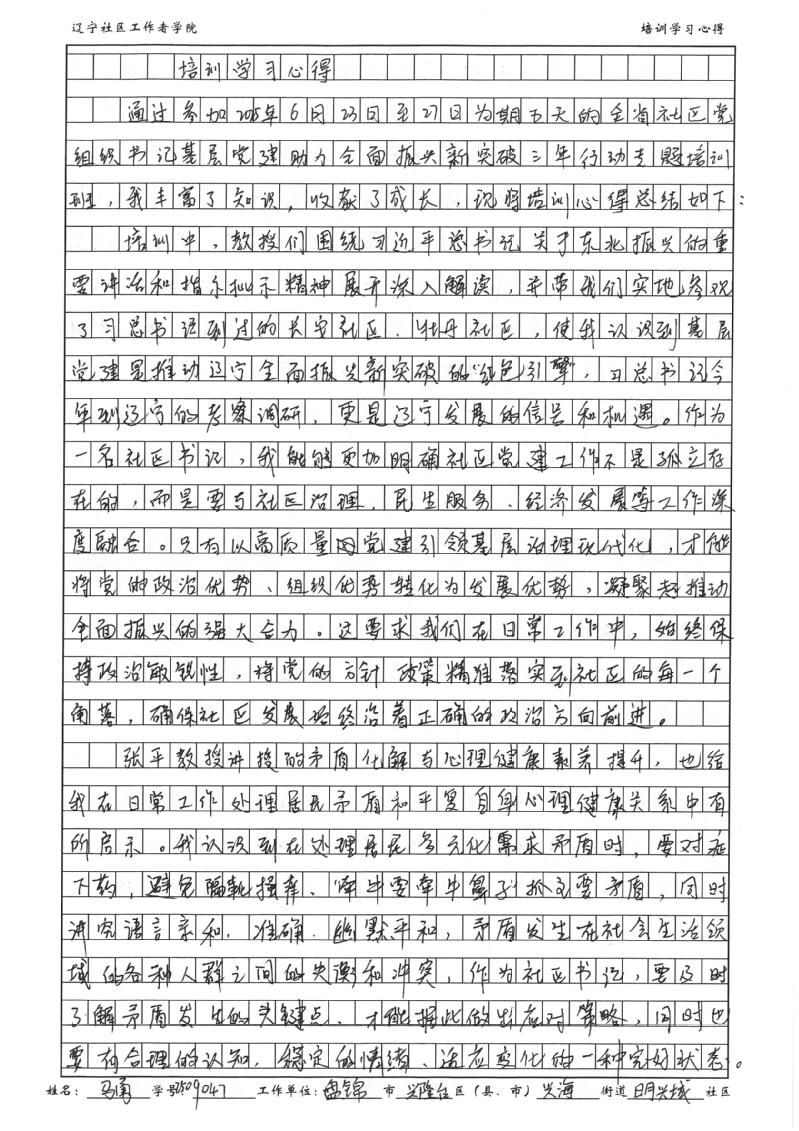 辽宁社区工作者学院 培训学习心得
培训学习心得
通过参加2025年6月23日至27日为期五天的全省社区党
组织书记基层党建助力全面振兴新突破三年行动专题培训
班，我丰富了知识，收获了成长，现将培训心得总结如下：
培训中，教授们围绕习近平总书记关于东北振兴的重
要讲话和指示批示精神展开深入解读，并带我们实地参观
了习总书记到过的长安社区、牡丹社区，使我认识到基层
党建是推动辽宁全面振兴新突破的“红色引擎”，习总书记今
年到辽宁的考察调研，更是辽宁发展的信号和机遇。作为
一名社区书记，我能够更加明确社区党建工作不是孤立存
在的，而是要与社区治理、民生服务、经济发展等工作深
度融合。只有以高质量的党建引领基层治理现代化，才能
将党的政治优势、组织优势转化为发展优势，凝聚起推动
全面振兴的强大合力。这要求我们在日常工作中，始终保
持政治敏锐性，将党的方针政策精准落实到社区的每一个
角落，确保社区发展始终沿着正确的政治方向前进。
张平教授讲授的矛盾化解与心理健康素养提升，也给
我在日常工作处理居民矛盾和平复自身心理健康关系中有
所启示。我认识到在处理居民多元化需求矛盾时，要对症
下药，避免隔靴搔痒、牵牛要牵牛鼻子抓主要矛盾，同时
讲究语言亲和、准确、幽默平和，矛盾发生在社会生活领
域的各种人群之间的失衡和冲突，作为社区书记，要及时
了解矛盾发生的关键点，才能据此做出应对策略，同时也
要有合理的认知、稳定的情绪、适应变化的一种完好状态。
姓名：马勇 学号：2509047 工作单位：盘锦 市 兴隆台区（县、市）兴海 街道 明兴城 社区